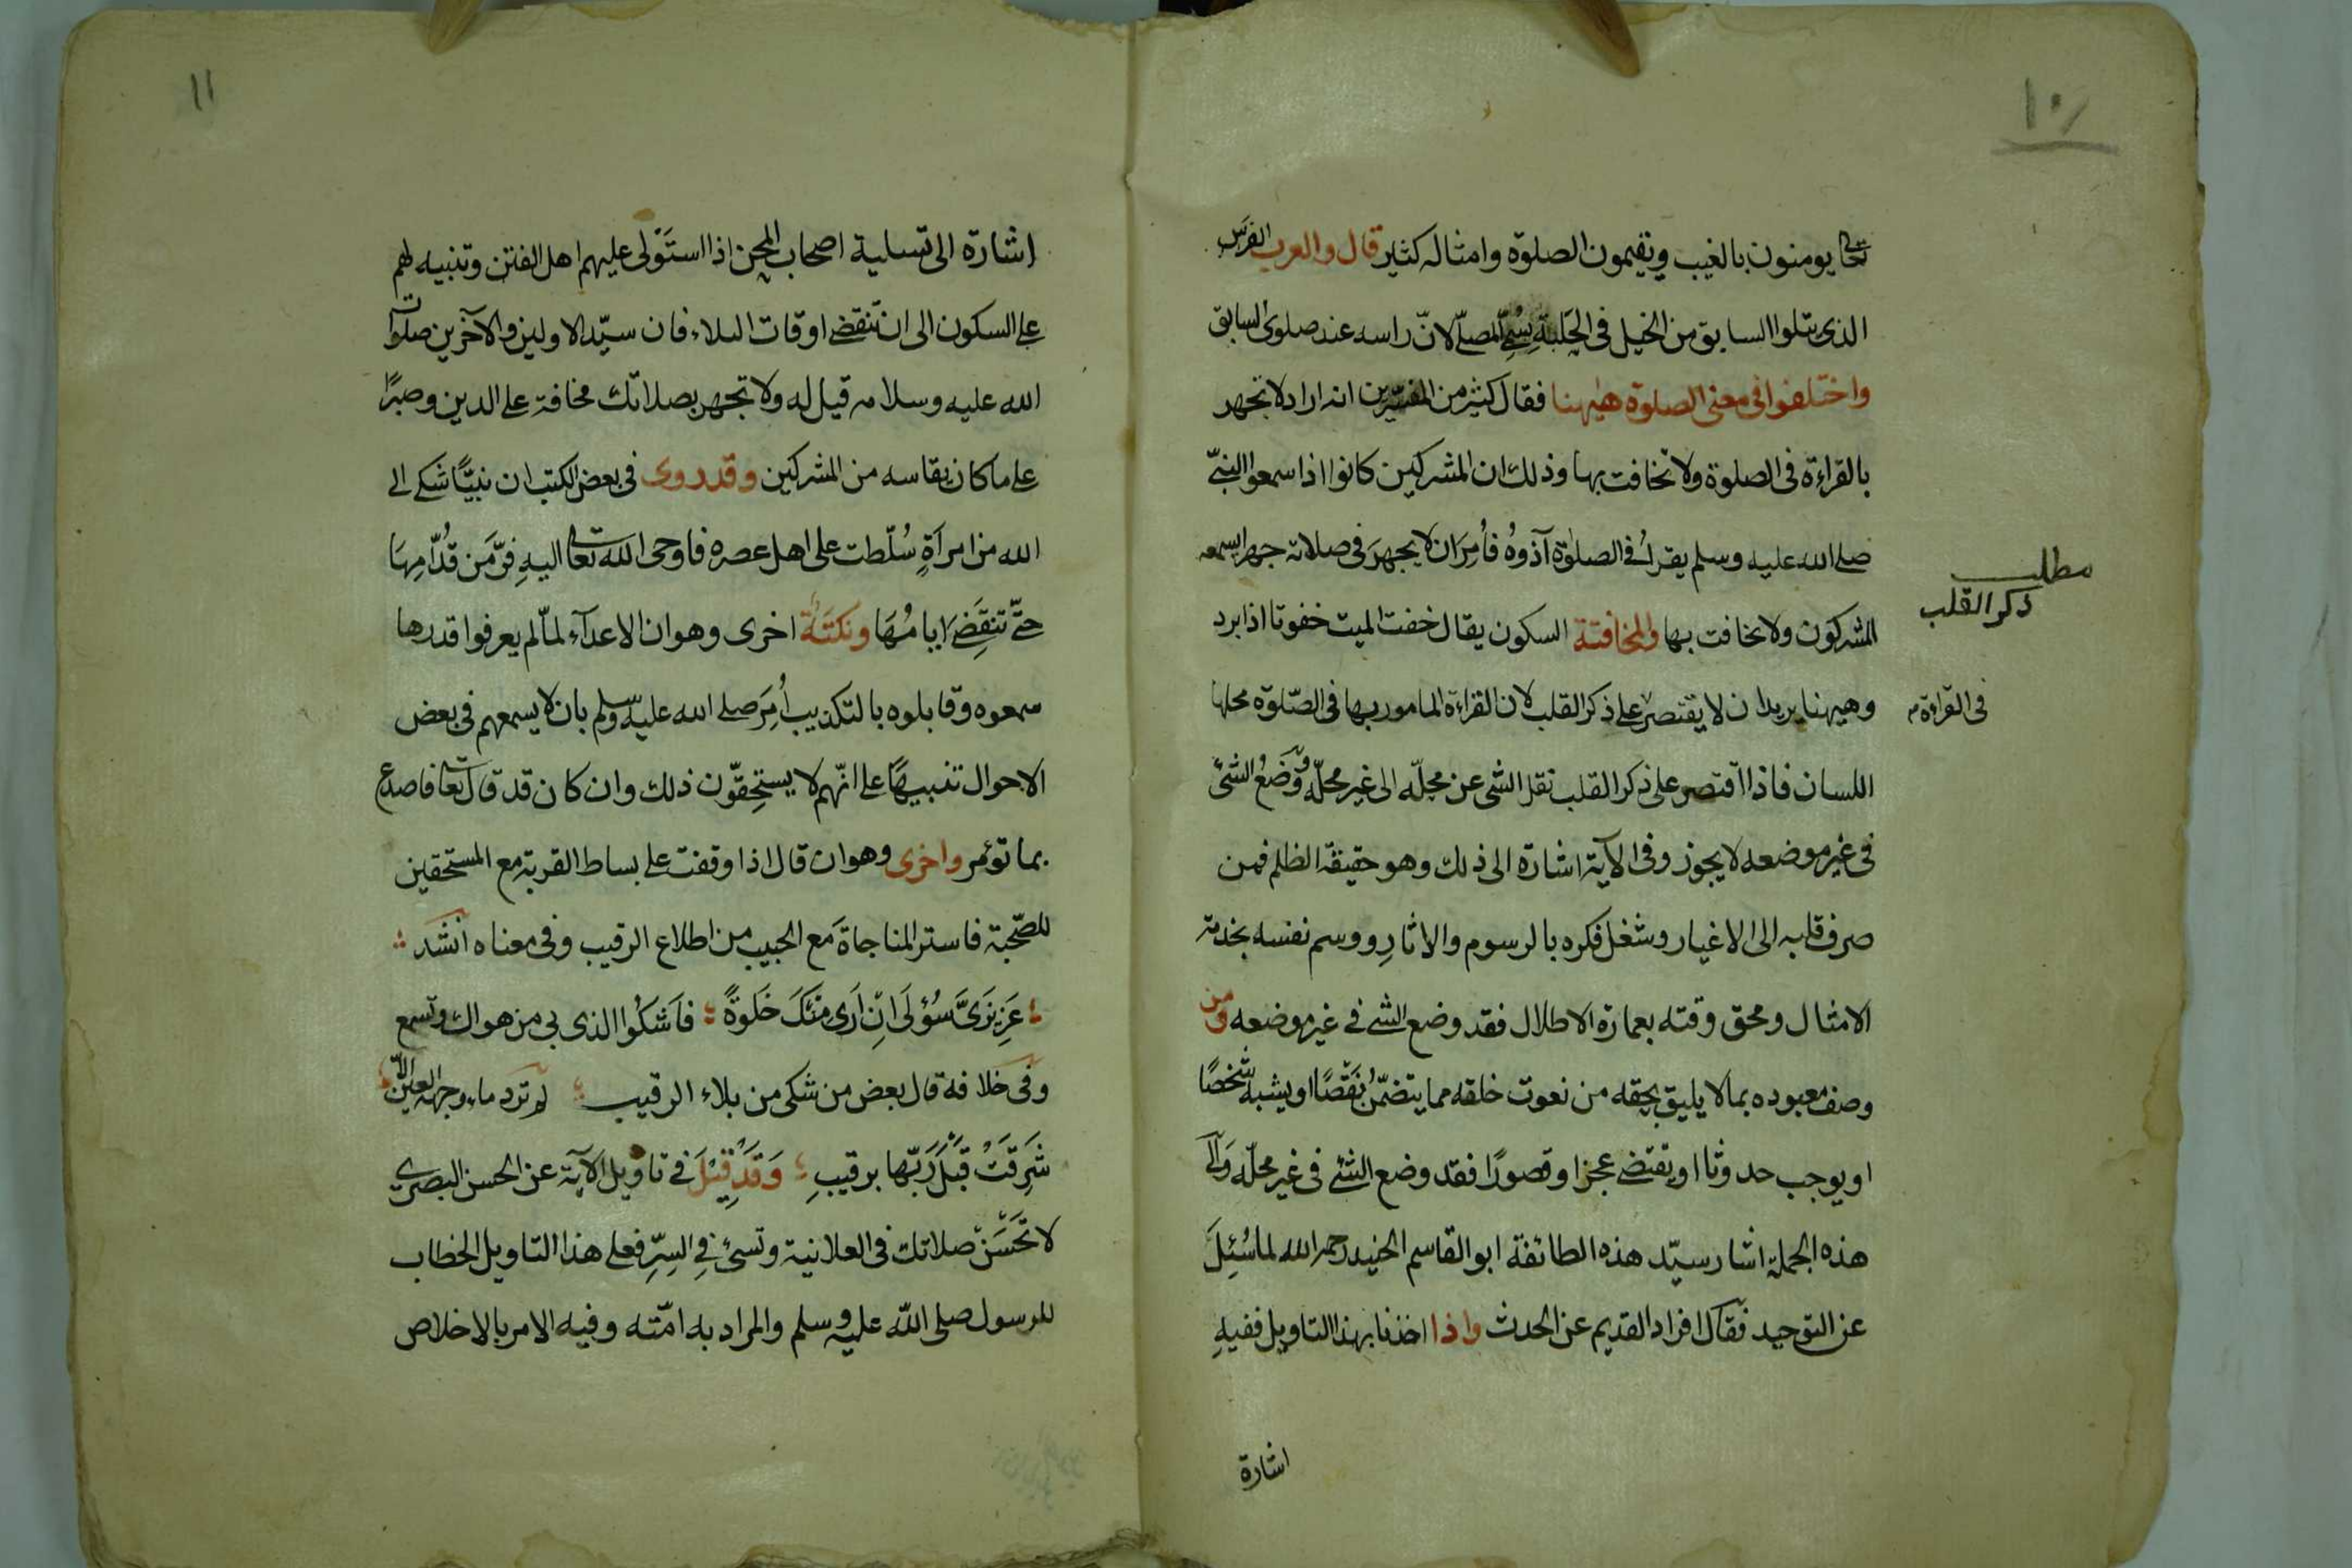 ١٠
تعالى يومنون بالغيب ويقيمون الصلوة وامثاله كثير قال والعرب الفرس
الذى يتلوا السابق من الخيل فى الحَلبةِ يُسمّى المصلّى لانّ راسه عند صلوى السابق
واختلفوا فى معنى الصلوة هيهنا فقال كثير من المفسّرين انه اراد لا تجهر
بالقراءة فى الصلوة ولا تخافت بها وذلك ان المشركين كانوا اذا سمعوا النبىّ
صلى الله عليه وسلم يقرأ فى الصلوة آذوهُ فأُمِرَ ان لا يجهرَ فى صلاته جهرا يسمعه
المشركون ولا تخافت بها والمخافتة السكون يقال خفت الميت خفوتا اذا برد
مطلب
ذكر القلب
وهيهنا يريد ان لا يقتصر على ذكر القلب لان القراءة المامور بها فى الصّلوة محلها
فى القراءة
اللسان فاذا اقتصر على ذكر القلب نقل الشى عن محلّه الى غير محلّه ووَضعُ الشئ
فى غير موضعه لا يجوز وفى الآية اشارة الى ذلك وهو حقيقة الظلم فمن
صرف قلبه الى الاغيار وشغل فكره بالرسوم والاثارِ ووسم نفسه بخدمة
الامثال ومحق وقته بعمارة الاطلال فقد وضع الشئ فى غير موضعه ومن
وصف معبوده بما لا يليق بحقه من نعوت خلقه مما يتضمّن نَقْصًا او يشبه شخصًا
او يوجب حدوثا او يقتضى عجزا وقصورًا فقد وضع الشئ فى غير محلّه والى
هذه الجملة اشار سيّد هذه الطائفة ابو القاسم الجنيد رحمه الله لما سُئِلَ
عن التوحيد فقال افراد القديم عن الحدث واذا اخذنا بهذا التاويل ففيهِ
اشارة
١١
اشارة الى تسلية اصحاب المحن اذا استَوْلى عليهم اهل الفتن وتنبيه لهم
على السكون الى ان تنقضى اوقات البلاء فان سيّد الاولين والآخرين صلوات
الله عليه وسلامه قيل له ولا تجهر بصلاتك مخافة على الدين وصبرًا
على ما كان يقاسه من المشركين وقد روى فى بعض الكتب ان نبيًّا شكى الى
الله من امرأةٍ سُلّطت على اهل عصره فاوحى الله تعالى اليهِ فِرَّ مَن قُدّامِهَا
حتّى تنقَضِىَ ايامُهَا ونكتَةٌ اخرى وهو ان الاعدآء لمّا لم يعرفوا قدر ها
سمعوه وقابلوه بالتكذيب أُمِرَ صلى الله عليه وسلم بان لا يسمعهم فى بعض
الاحوال تنبيهًا على انّهم لا يستحِقّون ذلك وان كان قد قال تعالى فاصدع
بما تؤمر واخرى وهو ان قال اذا وقفت على بساط القربة مع المستحقين
للصّحبة فاستر المناجاةَ مع الحبيب من اطلاع الرقيب وفى معناه انشد
عَزِيزَىَّ سُؤلَى انْ اَرَى مِنْكَ خَلوَةً فاَشكُوا الذى بى من هواك وتسمع
وفى خلافه قال بعض من شكى من بلاء الرقيب لم ترد ماء وجهه العين الّا
شَرِقَتْ قَبْلَ رَيّها برقيبِ وَقَدْ قِيْلَ فى تاويل الآية عن الحسن البصرى
لا تَحَسّنْ صلاتك فى العلانية وتسئ فى السِرِّ فعلى هذا التاويل الخطاب
للرسول صلى الله عليه وسلم والمراد به امّته وفيه الامر بالاخلاص